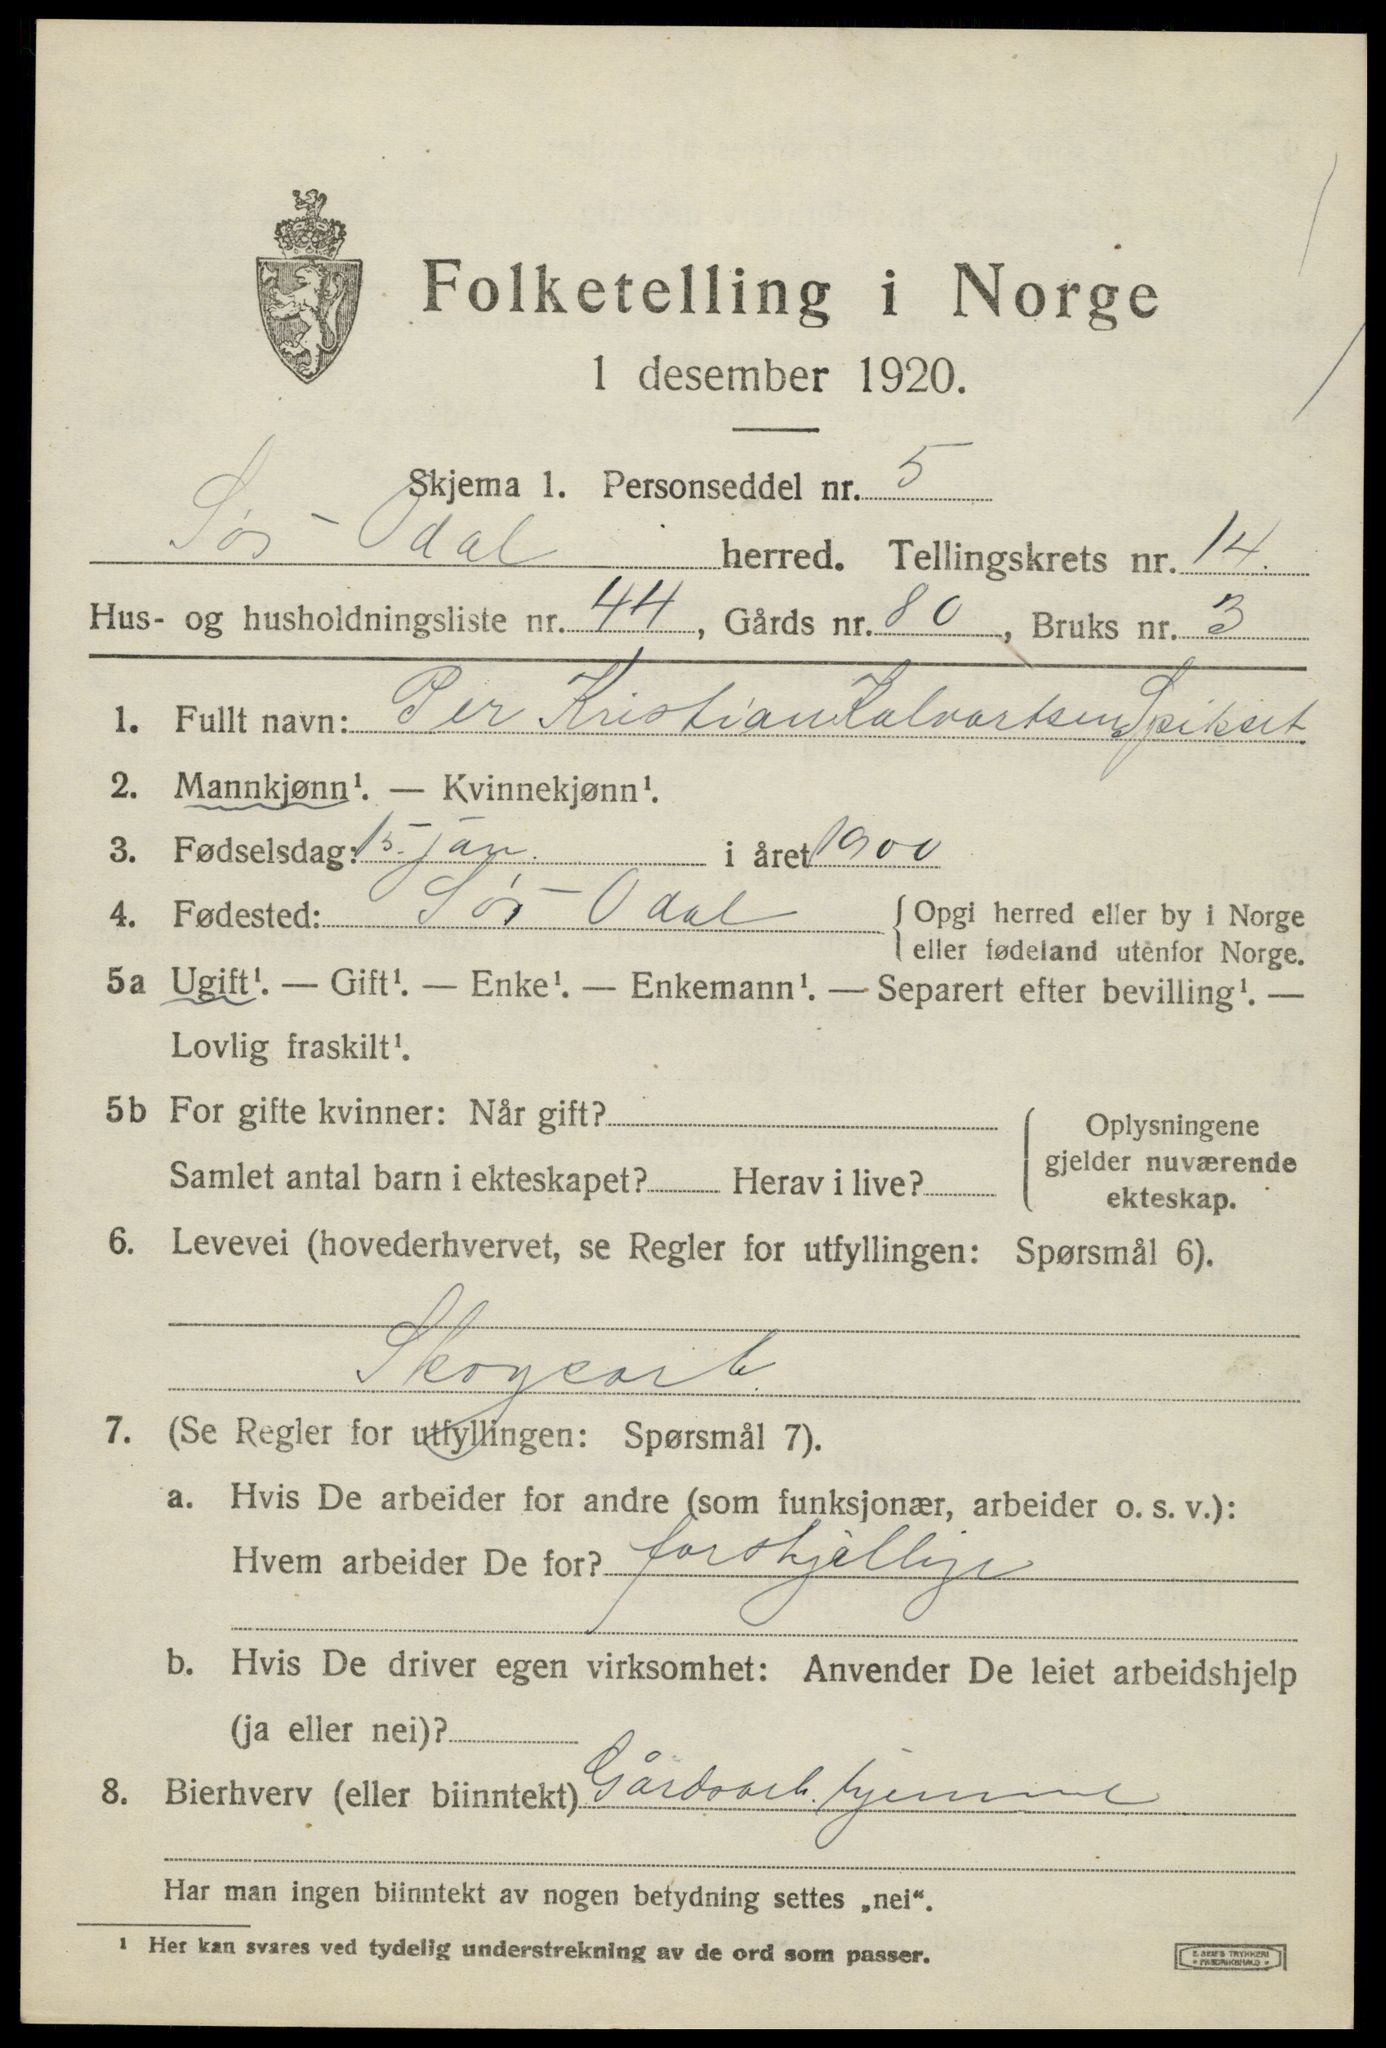 Folketelling i Norge
1 desember 1920.
Skjema 1. Personseddel nr. 5
Sør-Odal herred. Tellingskrets nr. 14.
Hus- og husholdningsliste nr. 44, Gårds nr. 80, Bruks nr. 3
1. Fullt navn: Per Kristian Halvorsen Spikset
2. Mannkjønn¹. — Kvinnekjønn¹.
3. Fødselsdag: 15. jan. i året 1900
4. Fødested: Sør-Odal { Opgi herred eller by i Norge
eller fødeland utenfor Norge.
5a Ugift¹. — Gift¹. — Enke¹. — Enkemann¹. — Separert efter bevilling¹. —
Lovlig fraskilt¹.
5b For gifte kvinner: Når gift?
Samlet antal barn i ekteskapet? Herav i live?
Oplysningene
gjelder nuværende
ekteskap.
6. Levevei (hovederhvervet, se Regler for utfyllingen: Spørsmål 6).
Skogsarb.
7. (Se Regler for utfyllingen: Spørsmål 7).
a. Hvis De arbeider for andre (som funksjonær, arbeider o. s. v.):
Hvem arbeider De for? forskjellige
b. Hvis De driver egen virksomhet: Anvender De leiet arbeidshjelp
(ja eller nei)?
8. Bierhverv (eller biinntekt) Gårdsarb. hjemme
Har man ingen biinntekt av nogen betydning settes „nei“.
¹ Her kan svares ved tydelig understrekning av de ord som passer.
E. SEM'S TRYKKERI
FREDRIKSHALD